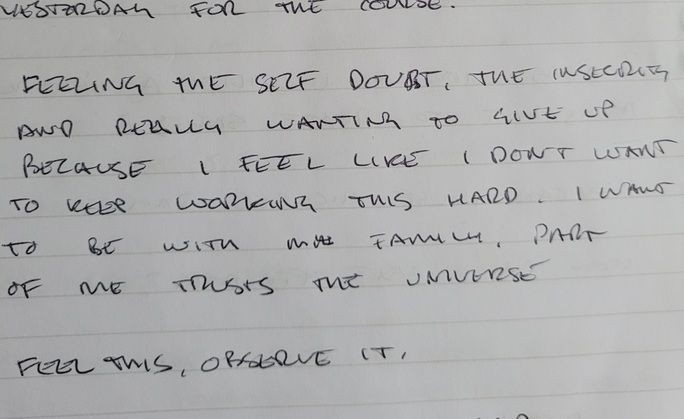 YESTERDAY FOR THE COURSE.
FEELING THE SELF DOUBT, THE INSECURITY
AND REALLY WANTING TO GIVE UP
BECAUSE I FEEL LIKE I DON'T WANT
TO KEEP WORKING THIS HARD. I WANT
TO BE WITH FAMILY, PART
OF ME TRUSTS THE UNIVERSE
FEEL THIS, OBSERVE IT,